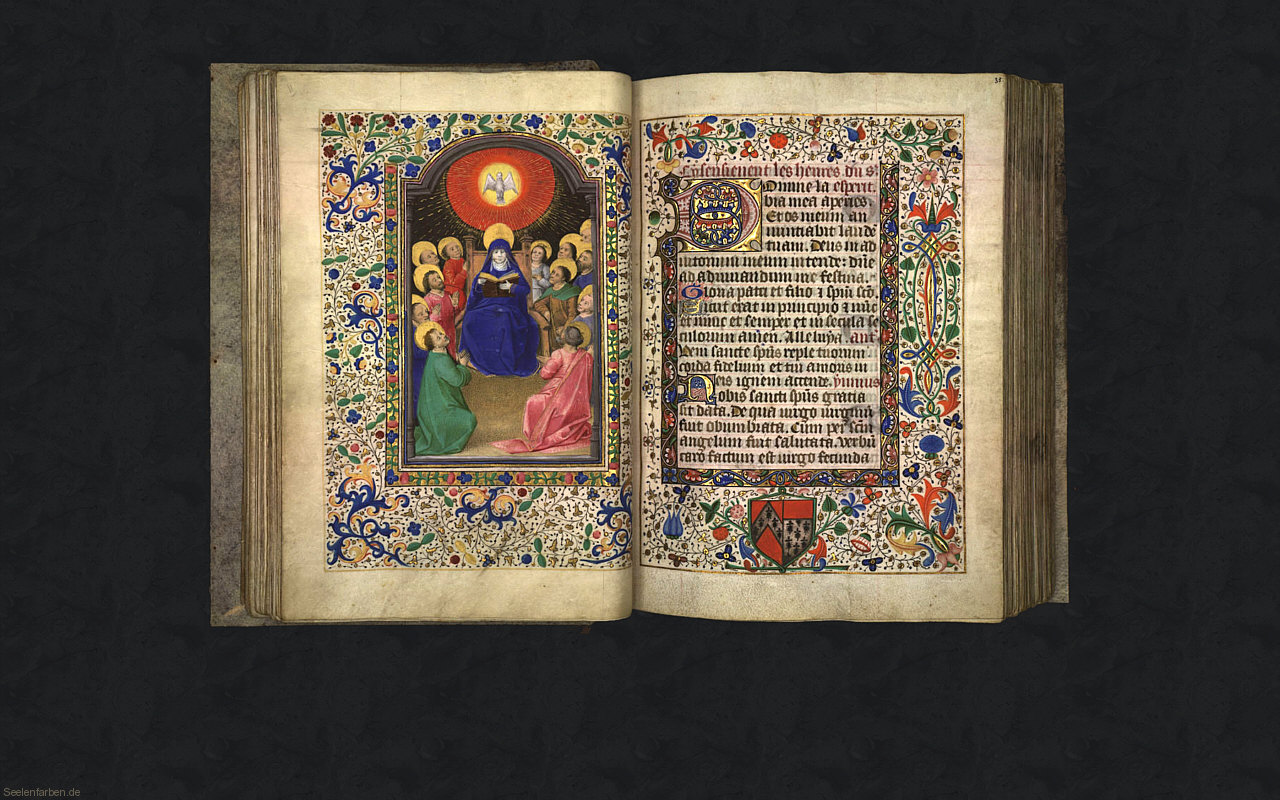 38
Cy sensievent les heures du s.
Domine la esperit.
bia mea aperies
Et os meum an
nuntiabit laude
tuam. Deus in ad
iutorium meum intende: dñe
ad adiuuandum me festina.
Gloria patri et filio ⁊ spũi scõ
Sicut erat in principio ⁊ nũc
et nunc et semper et in secula se
culorum amen. Alleluya. ant
Veni sancte spũs reple tuorum
corda fidelium et tui amoris in
eis ignem accende. ymnus
Nobis sancti spũs gratia
sit data. De qua uirgo uirginũ
fuit obumbrata. Cum per scm̃
angelum fuit salutata. Verbũ
caro factum est uirgo fecunda
Seelenfarben.de